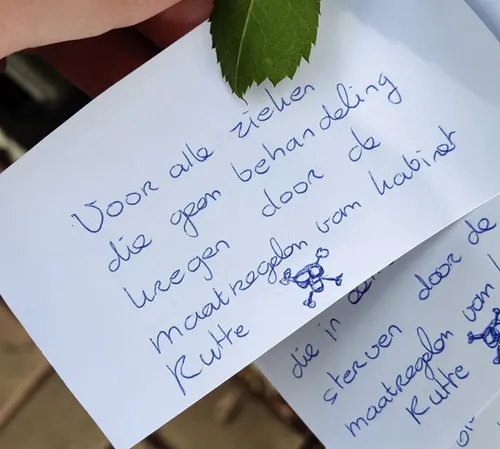 Voor alle zieken
die geen behandeling
kregen door de
maatregelen vam kabinet
Rutte
die in
sterven door de
maatregelen vom
Rutte